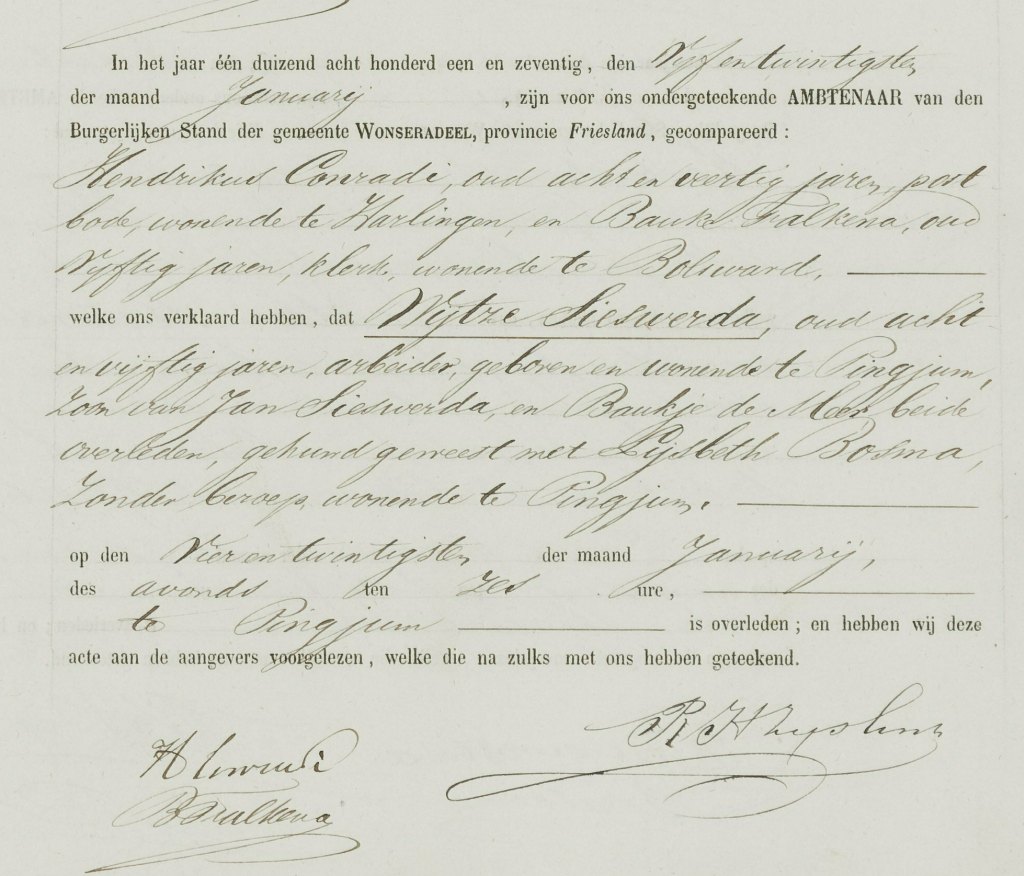 In het jaar één duizend acht honderd een en zeventig, den Vijf en twintigsten
der maand Januarij , zijn voor ons ondergeteekende AMBTENAAR van den
Burgerlijken Stand der gemeente WONSERADEEL, provincie Friesland, gecompareerd :
Hendrikus Conradi, oud acht en veertig jaren, post
bode, wonende te Harlingen, en Bauke Falkena, oud
Vijftig jaren, klerk, wonende te Bolsward,
welke ons verklaard hebben, dat Wijtze Sieswerda, oud acht
en vijftig jaren, arbeider, geboren en wonende te Pingjum,
Zoon van Jan Sieswerda, en Baukje de Meer beide
overleden, gehuwd geweest met Lijsbeth Bosma,
Zonder beroep, wonende te Pingjum.
op den Vier en twintigsten der maand Januarij,
des avonds ten zes ure,
te Pingjum is overleden ; en hebben wij deze
acte aan de aangevers voorgelezen, welke die na zulks met ons hebben geteekend.
H Conradi
B Falkena